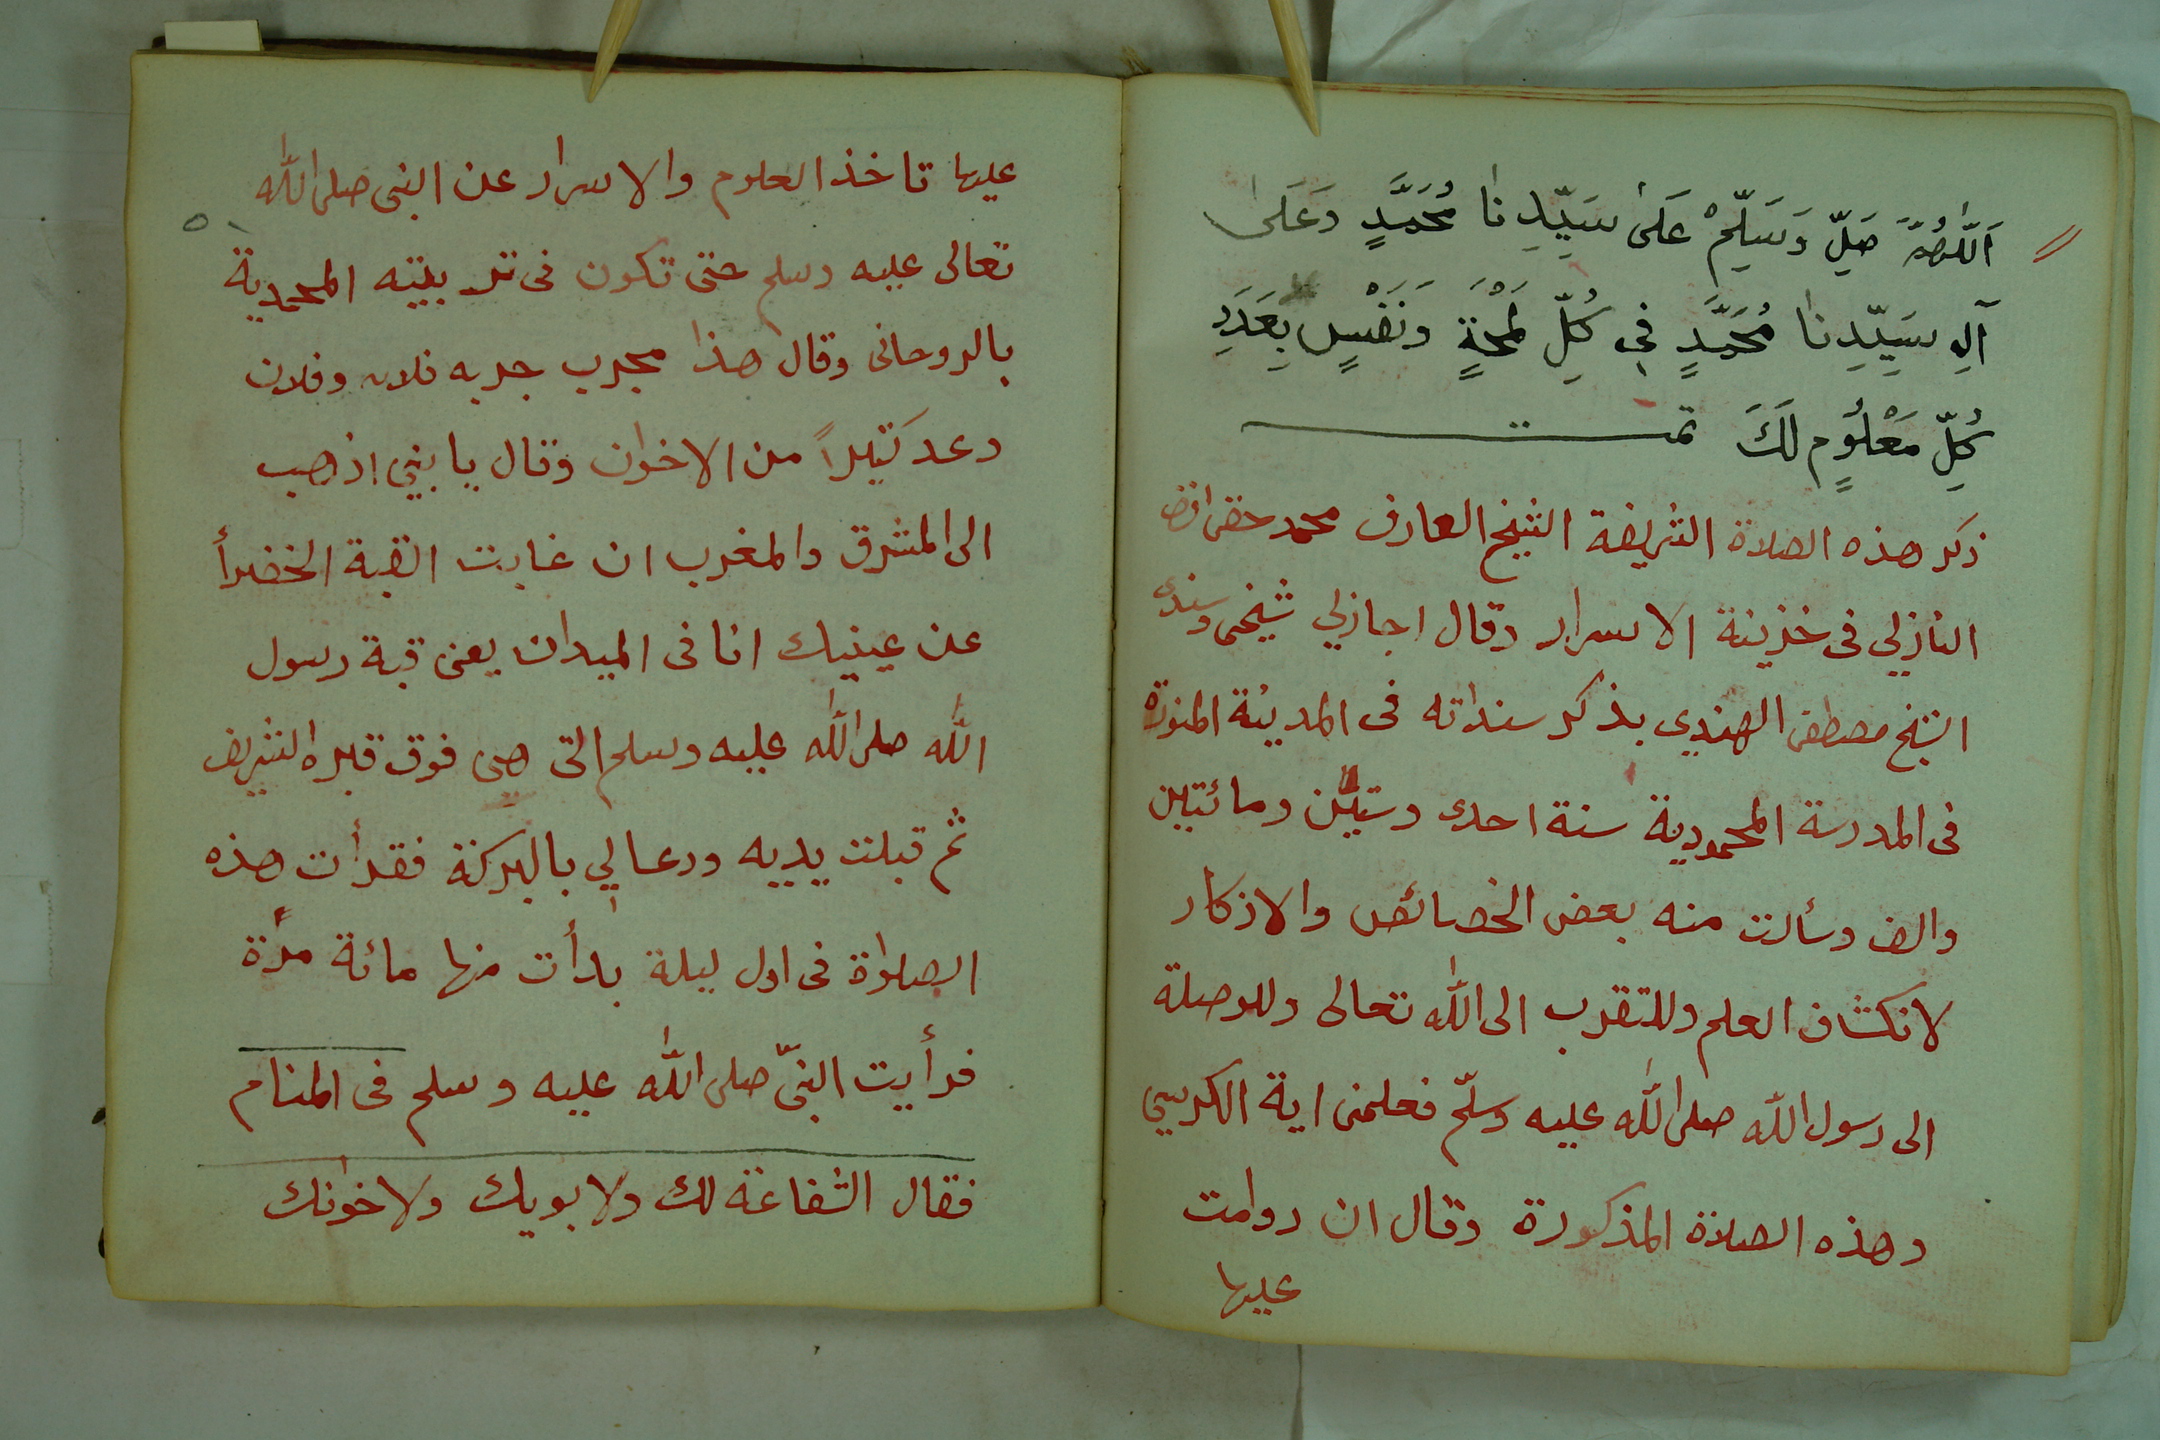 اَللّٰهُمَّ صَلِّ وَسَلِّمْ عَلَىٰ سَيِّدِنَا مُحَمَّدٍ وَعَلَىٰ
آلِهِ سَيِّدِنَا مُحَمَّدٍ فِي كُلِّ لَمْحَةٍ وَنَفَسٍ بِعَدَدِ
كُلِّ مَعْلُومٍ لَكَ تمت
ذكر هذه الصلاة الشريفة الشيخ العارف محمد حقى افندى
النازلي فى خزينة الاسرار وقال اجازلي شيخى وسندى
الشيخ مصطفى الهندي بذكر سنداته فى المدينة المنورة
فى المدرسة المحمودية سنة احدى وستين ومائتين
والف وسألت منه بعض الخصائص والاذكار
لانكشاف العلم وللتقرب الى الله تعالى وللوصلة
الى رسول الله صلى الله عليه وسلّم فعلمنى اية الكرسي
وهذه الصلاة المذكورة وقال ان دوامت
عليها
عليها تاخذ العلوم والاسرار عن النبى صلى الله
تعالى عليه وسلم حتى تكون فى تربيته المحمدية
٥١
بالروحانى وقال هذا مجرب جربه فلان وفلان
وعد كثيراً من الاخوان وقال يا بني اذهب
الى المشرق والمغرب ان غابت القبة الخضرأ
عن عينيك انا فى الميدان يعنى قبة رسول
الله صلى الله عليه وسلم التى هى فوق قبره الشريف
ثم قبلت يديه ودعا لي بالبركة فقرأت هذه
الصلواة فى اول ليلة بدأت منها مائة مرّة
فرأيت النبيّ صلى الله عليه وسلم فى المنام
فقال الشفاعة لك ولابويك ولاخوانك